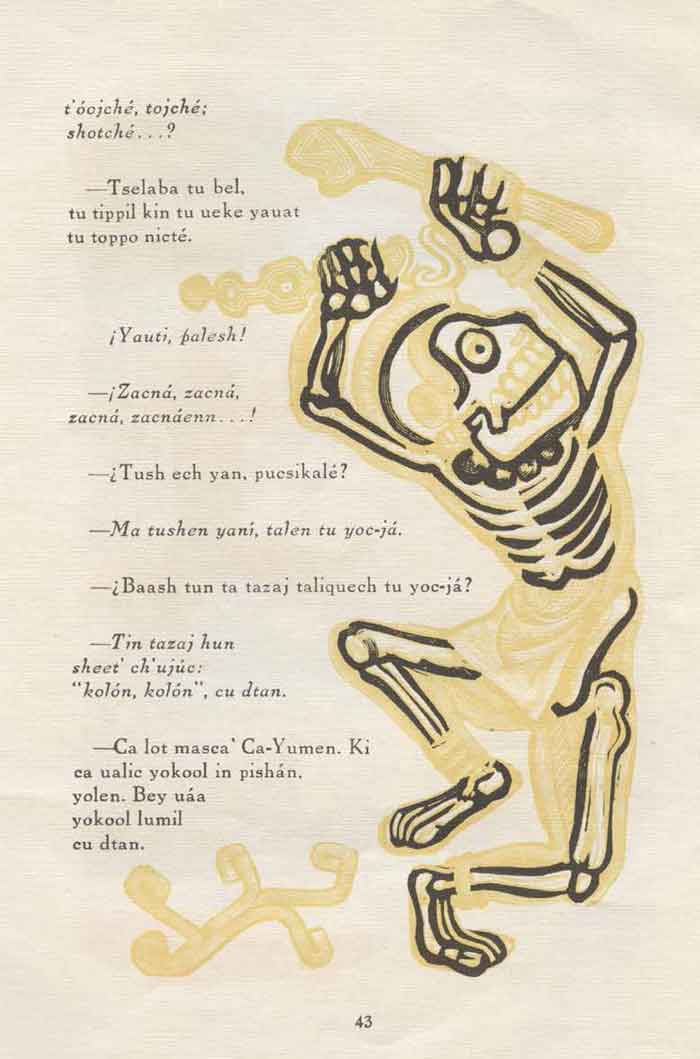 t'óojché, tojché;
shotché...?
—Tselaba tu bel,
tu tippil kin tu ueke yauat
tu toppo nicté.
¡Yauti, palesh!
—¡Zacná, zacná,
zacná, zacnáenn...!
—¿Tush ech yan, pucsikalé?
—Ma tushen yaní, talen tu yoc-já.
—¿Baash tun ta tazaj taliquech tu yoc-já?
—Tin tazaj hun
sheet' ch'ujúc:
"kolón, kolón", cu dtan.
—Ca lot masca' Ca-Yumen. Ki
ca ualic yokool in pishán,
yolen. Bey uáa
yokool lumil
cu dtan.
43